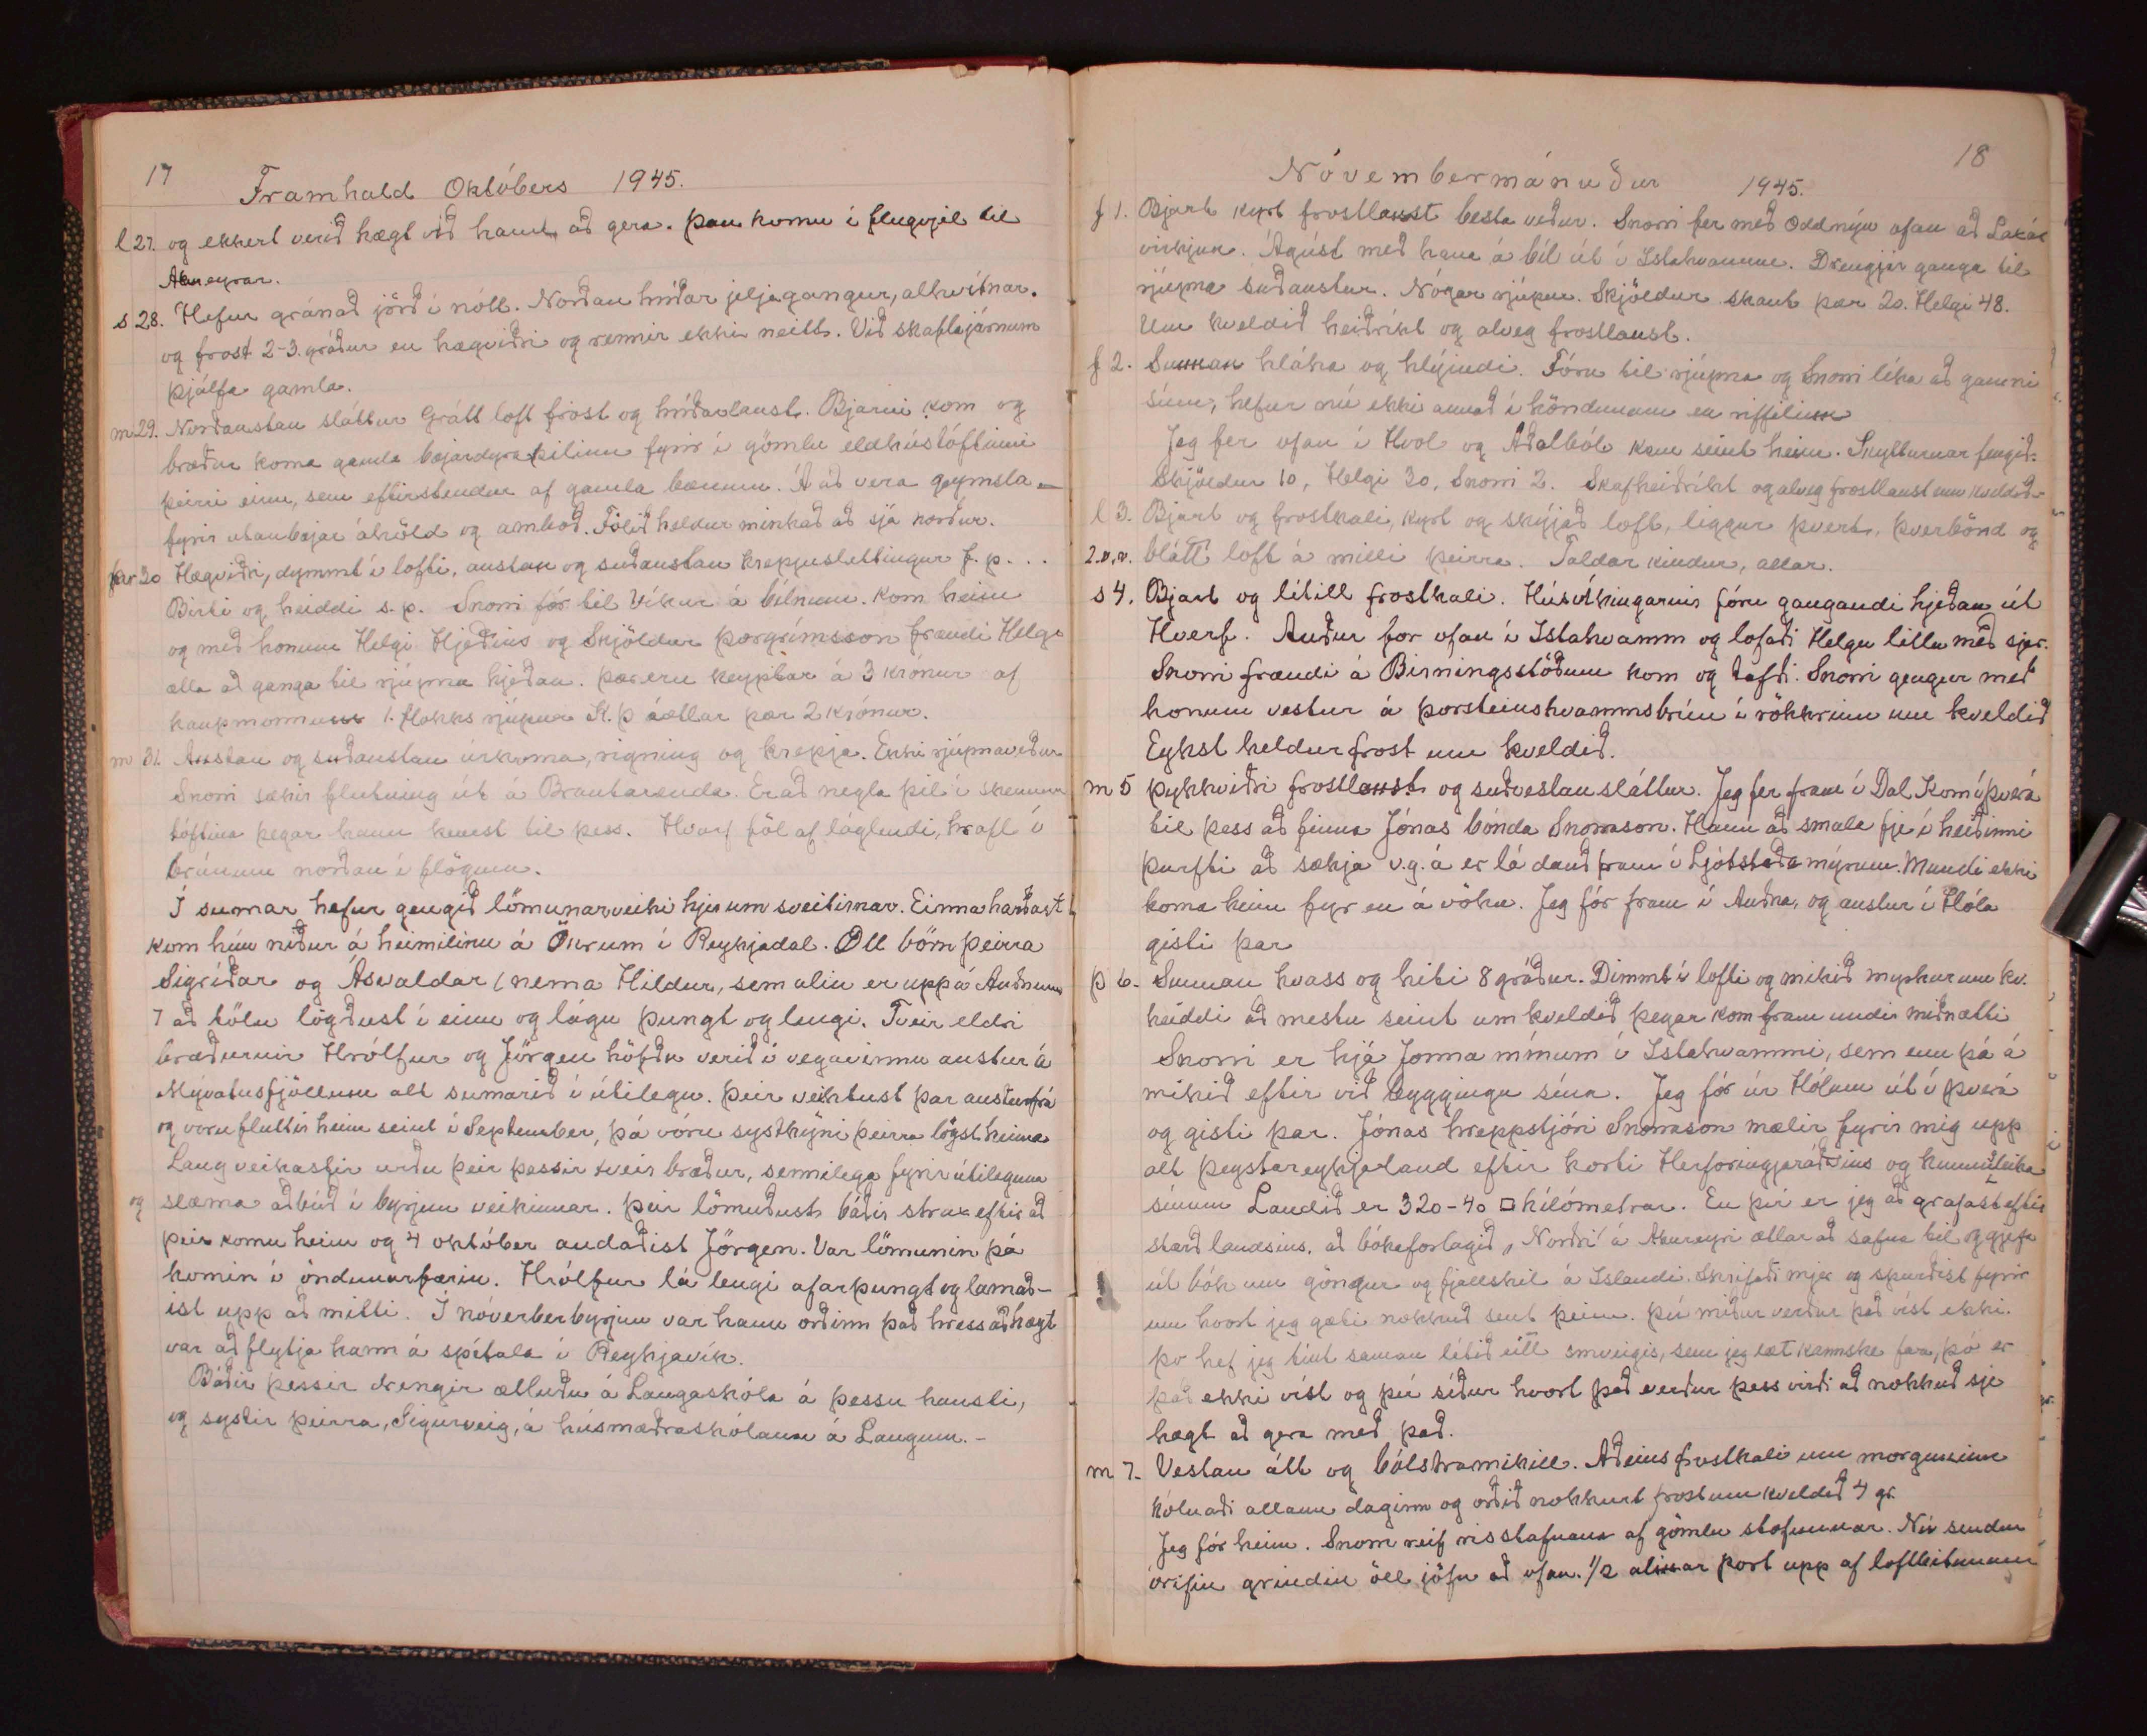 17
Framhald Októbers 1945.
l 27. og ekkert verið hægt við hann að gera. Þau komu í flugvjel til
Akureyrar.
s 28. Hefur gránað jörð í nótt. Norðan hríðar jeljagangur, alhvítnar.
og frost 2-3. gráður en hægviðri og rennir ekki neitt. Við skaflajárnum
Þjálfa gamla.
m 29. Norðaustan sláttur Grátt loft frost og hríðarlaust. Bjarni kom og
bræður koma gamla bæjardyraþilinu fyrir í gömlu eldhústóftinni
þeirri einu, sem eftirstendur af gamla bænum. Á að vera geymsla -
fyrir utanbæjar áhöld og amboð. Fölið heldur minkað að sjá norður.
þr 30 Hægviðri, dymmt í lofti, austan og suðaustan krepjuslettingur f. p. . .
Birti og heiddi s. p. Snorri fór til Víkur á bílnum. Kom heim
og með honum Helgi Hjeðins og Skjöldur Þorgrímsson frændi Helga
ætla að ganga til rjúpna hjeðan. Þær eru keyptar á 3 krónur af
kaupmonnum 1. flokks rjúpur K. Þ áætlar þær 2 krónur.
m 31. Austan og suðaustan úrkoma, rigning og krepja. Ekki rjúpnaveður
Snorri sækir flutning út á Brautarenda. Er að negla þil í skemmu
tóftina þegar hann kemst til þess. Hvarf föl af láglendi, hrafl í
brúnum norðan í flögum.
Í sumar hefur gengið lömunarveiki hjer um sveitirnar. Einna harðast
kom hún niður á heimilinu á Ökrum í Reykjadal. Öll börn þeirra
Sigríðar og Ásvaldar (nema Hildur, sem alin er upp á Auðnum
7 að tölu lögðust í einu og lágu þungt og lengi. Tveir eldri
bræðurnir Hrólfur og Jörgen höfðu verið í vegavinnu austur á
Mývatnsfjöllum alt sumarið í útilegu. Þeir veiktust þar austurfrá
og voru fluttir heim seint í September, þá vóru systkyni þeirra lögst heima
Lang veikastir urðu þeir þessir tveir bræður, sennilega fyrir útileguna
og slæma aðbúð í byrjun veikinnar. Þeir lömuðust báðir strax eftir að
þeir komu heim og 4 október andaðist Jörgen. Var lömunin þá
komin í öndunarfærin. Hrólfur lá lengi afarþungt og lamað-
ist upp að mitti. Í nóverberbyrjun var hann orðinn það hress að hægt
var að flytja hann á spítala í Reykjavík.
Báðir þessir drengir ætluðu á Laugaskóla á þessu hausti,
og systir þeirra, Sigurveig, á húsmæðraskólann á Laugum. -
18
Nóvembermánuður 1945.
f 1. Bjart kyrt frostlaust besta veður. Snorri fer með Oddnýu ofan að Laxár
virkjun. Ágúst með hana á bíl út í Ystahvamm. Drengjir ganga til
rjúpna suðaustur. Nógar rjúpur. Skjöldur skaut þar 20. Helgi 48.
Um kveldið heiðríkt og alveg frostlaust.
f 2. Sunnan hláka og hlýindi. Fóru til rjúpna og Snorri líka að gamni
sínu, hefur nú ekki annað í höndunum en riffilinn
Jeg fer ofan í Hvol og Aðalból kom seint heim. Skytturnar fengið:
Skjöldur 10, Helgi 30, Snorri 2. Skafheiðríkt og alveg frostlaust um kveldið-
l 3. Bjart og frostkali, kyrt og skýjað loft, liggur þvert, þverbönd og
2. v. v. blátt loft á milli þeirra. Taldar kindur, allar.
s 4. Bjart og lítill frostkali. Húsvíkingarnir fóru gangandi hjeðan út
Hverf. Auður for ofan í Ystahvamm og lofaði Helgu litlu með sjer.
Snorri frændi á Birningsstöðum kom og tafði. Snorri gengur með
honum vestur á Þorsteinshvammsbrún í rökkrinu um kveldið
Eykst heldur frost um kveldið.
m 5 Þykkviðri frostlaust og suðvestan sláttur. Jeg fer fram í Dal Kom í Þverá
til þess að finna Jónas bónda Snorrason. Hann að smala fje í heiðinni
þurfti að sækja v. g. á er lá dauð fram í Ljótsstaða mýrum. Mundi ekki
koma heim fyr en á vöku. Jeg fór fram í Auðna, og austur í Hóla
gisti þar
þ 6. Sunnan hvass og hiti 8 gráður. Dimmt í lofti og mikið myrkur um kv.
heiddi að mestu seint um kveldið þegar kom fram undir miðnætti
Snorri er hjá Jonna mínum í Ystahvammi, sem enn þá á
mikið eftir við byggingu sína. Jeg fór úr Hólum út í Þverá
og gisti þar. Jónas hreppstjóri Snorrason mælir fyrir mig upp
alt Þeystareykjaland eftir korti Herforingjaráðsins og kunnugleika
sínum Landið er 320-40 □ kílómetrar. En því er jeg að grafast eftir
stærð landsins, að bókaforlagið „Norðri" á Akureyri ætlar að safna til og gefa
út bók um göngur og fjallskil á Íslandi. Skrifaði mjer og spurðist fyrir
um hvort jeg gæti nokkuð sent þeim. Því miður verður það víst ekki.
Þó hef jeg tínt saman lítið eitt smveigis, sem jeg læt kannske fara, þó er
það ekki víst og því síður hvort það verður þess virði að nokkuð sje
hægt að gera með það.
m 7. Vestan átt og bólstramikill. Aðeins frostkali um morguninn
kólnaði allann daginn og orðið nokkurt frost um kveldið 4 gr.
Jeg fór heim. Snorri reif risstafnana af gömlu stofunnar. Nú sendur
órifin grindin öll jöfn að ofan. 1/2 alinar port upp af loftbitunum